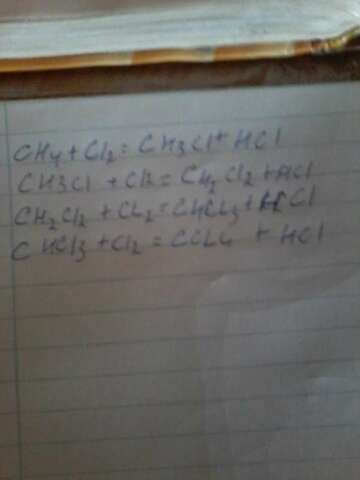 CH4 + Cl2 = CH3Cl + HCl
CH3Cl + Cl2 = CH2Cl2 + HCl
CH2Cl2 + CL2 = CHCL3 + HCl
CHCl3 + Cl2 = CCL4 + HCl